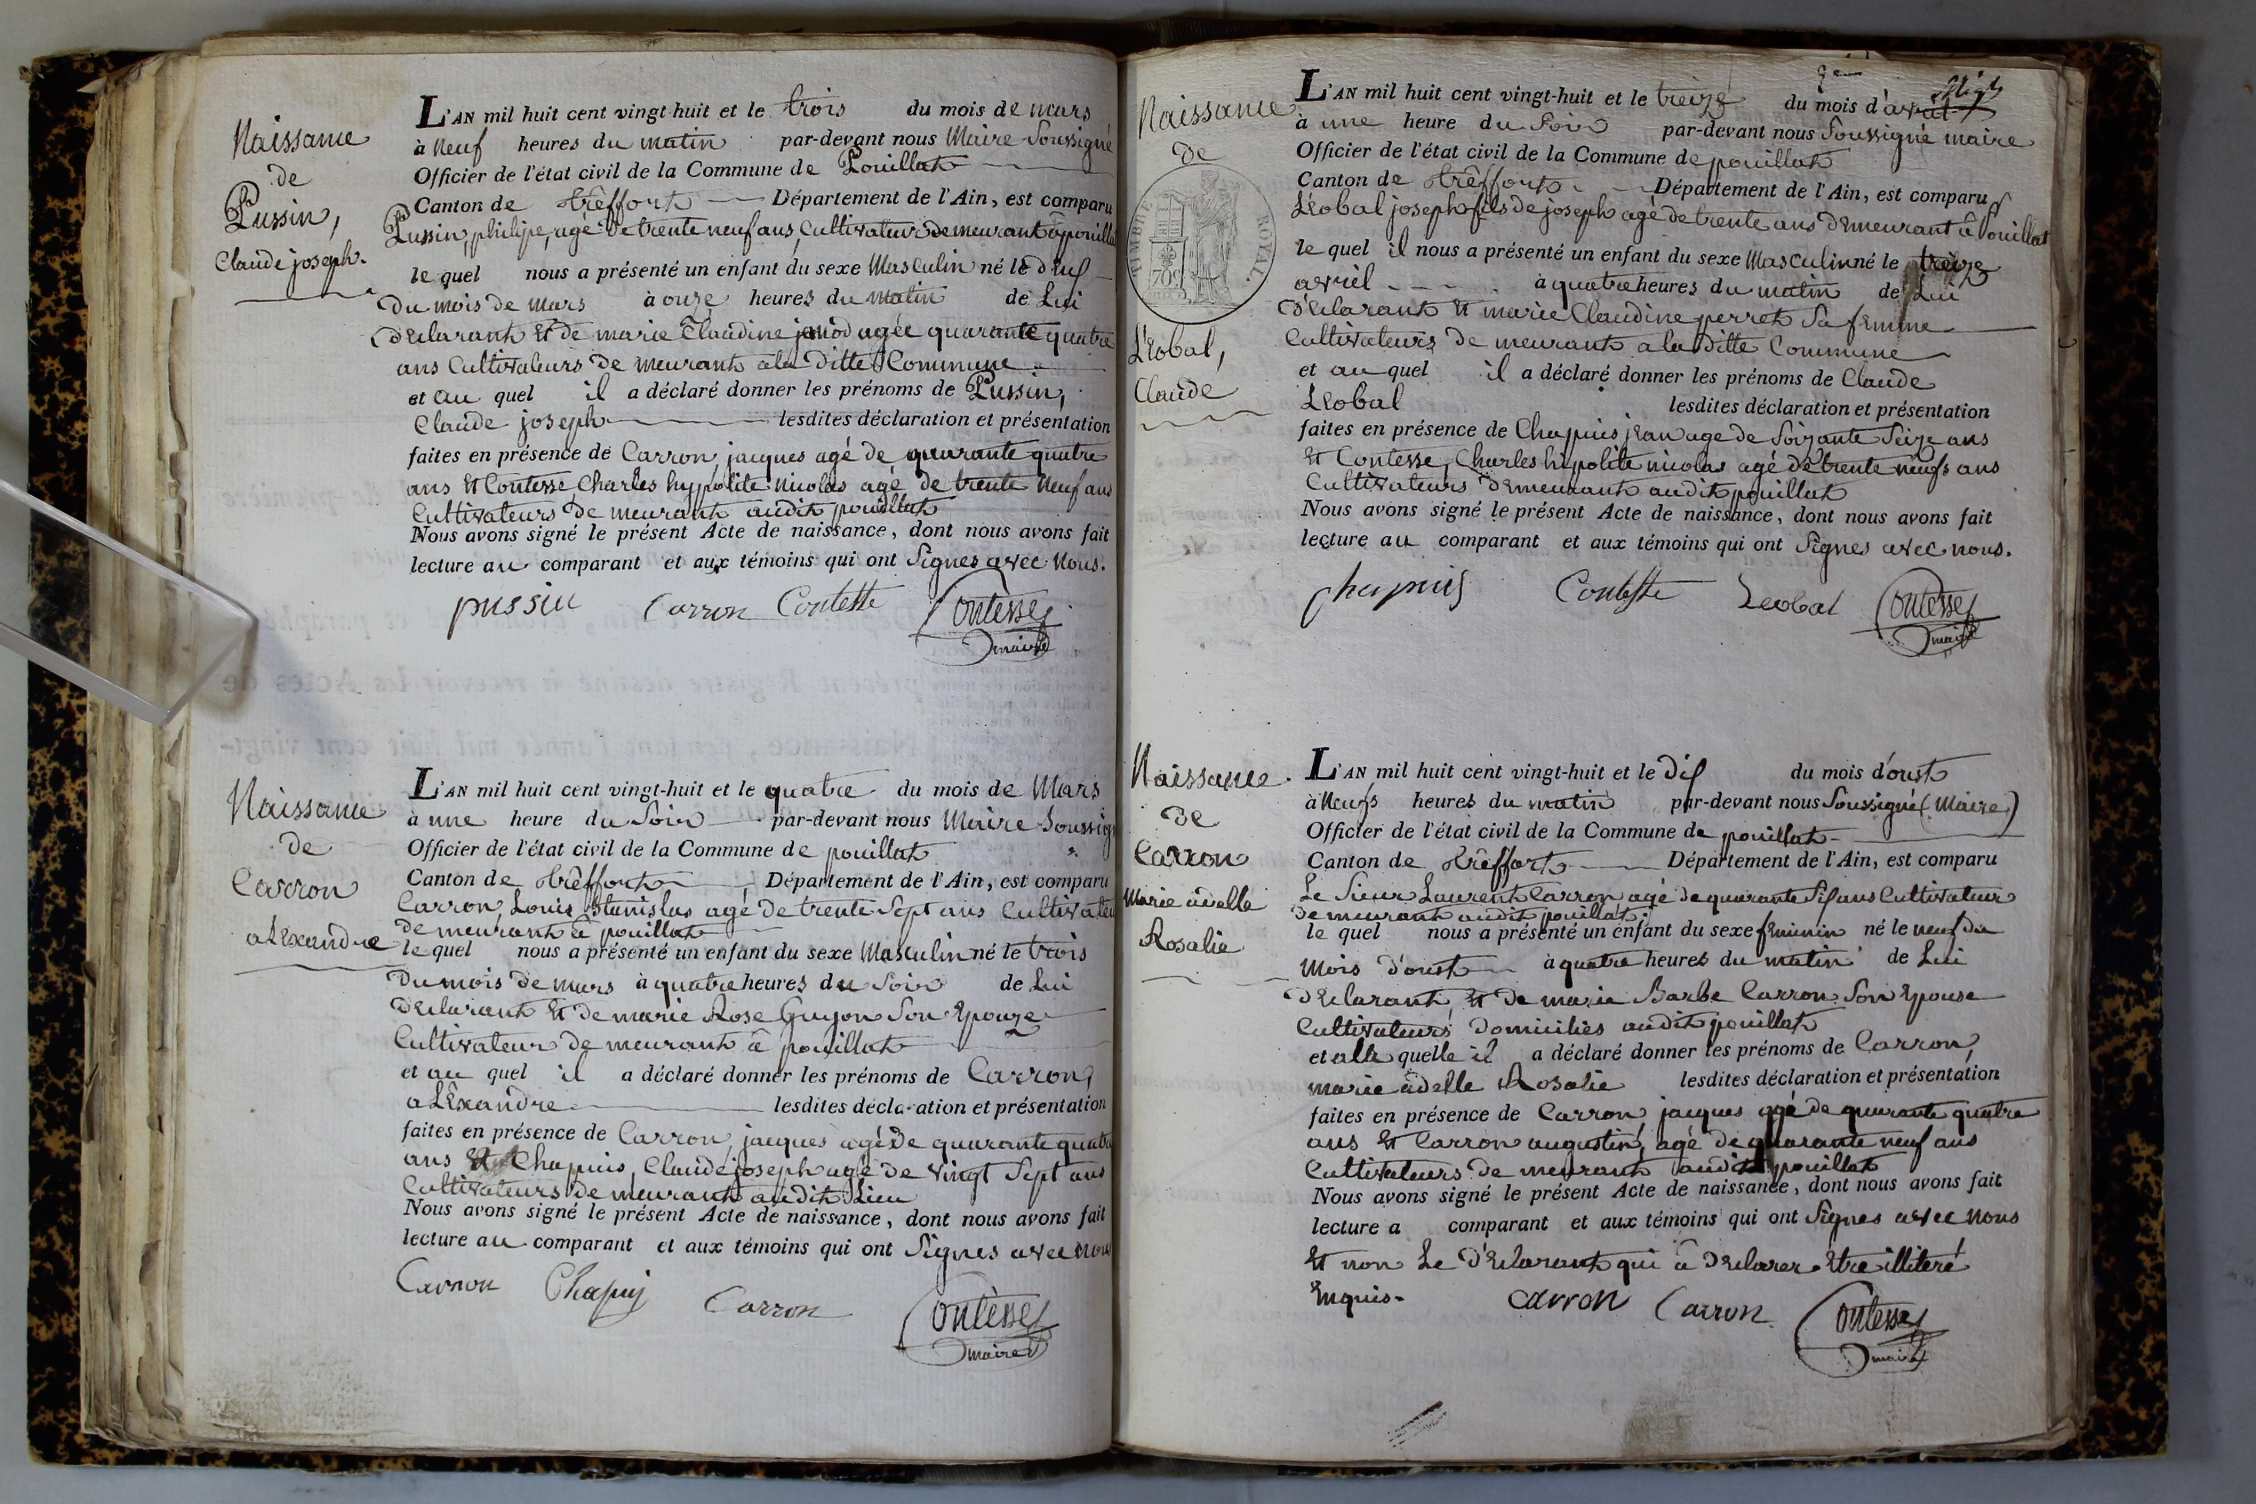 Naissance
de
Pussin,
Claude joseph.
L'AN mil huit cent vingt-huit et le trois du mois de mars
à neuf heures du matin par-devant nous Maire Soussigné
Officier de l'état civil de la Commune de Pouillat
Canton de Trêffort Département de l'Ain, est comparu
Pussin, philipe, agé de trente neuf ans, Cultivateur demeurant à pouillat
le quel nous a présenté un enfant du sexe Masculin né le deux
du mois de mars à onze heures du matin de Lui
déclarant et de marie Claudine janod agée quarante quatre
ans Cultivateurs de meurant à la ditte Commune
et au quel il a déclaré donner les prénoms de Pussin,
Claude joseph lesdites déclaration et présentation
faites en présence de Carron, jacques agé de quarante quatre
ans et Contesse, Charles hypolite nicolas agé de trente neuf ans
Cultivateurs de meurant audit pouillat
Nous avons signé le présent Acte de naissance, dont nous avons fait
lecture au comparant et aux témoins qui ont Signés avec nous.
pussin Carron Contesse Contesse
maire
Naissance
de
Carron
alExandre
L'AN mil huit cent vingt-huit et le quatre du mois de Mars
à une heure du Soir par-devant nous Maire Soussigné
Officier de l'état civil de la Commune de pouillat
Canton de Trêffort Département de l'Ain, est comparu
Carron, Louis Stanislas agé de trente Sept ans Cultivateur
de meurant à pouillat
le quel nous a présenté un enfant du sexe Masculin né le trois
du mois de mars à quatre heures du Soir de Lui
déclarant et de marie Rose Guyon Son Epouze
Cultivateur de meurant à pouillat
et au quel il a déclaré donner les prénoms de Carron,
alExandre lesdites déclaration et présentation
faites en présence de Carron, jacques agé de quarante quatre
ans et Chapuis, Claude joseph agé de vingt Sept ans
Cultivateurs de meurant audit Lieu
Nous avons signé le présent Acte de naissance, dont nous avons fait
lecture au comparant et aux témoins qui ont Signés avec nous
Carron Chapuy Carron Contesse
maire
Naissance
de
TIMBRE ROYAL.
70c
Léobal,
Claude
L'AN mil huit cent vingt-huit et le treize du mois d'avril
à une heure du Soir par-devant nous Soussigné maire
Officier de l'état civil de la Commune de pouillat
Canton de Trêffort Département de l'Ain, est comparu
Léobal joseph fils de joseph agé de trente ans demeurant à Pouillat
le quel il nous a présenté un enfant du sexe Masculin né le treize
avril à quatre heures du matin de Lui
déclarant et marie Claudine perret Sa femme
Cultivateurs de meurant a la ditte Commune
et au quel il a déclaré donner les prénoms de Claude
Léobal lesdites déclaration et présentation
faites en présence de Chapuis jean age de Soixante Seize ans
et Contesse, Charles hipolite nicolas agé de trente neufs ans
Cultivateurs demeurant audit pouillat
Nous avons signé le présent Acte de naissance, dont nous avons fait
lecture au comparant et aux témoins qui ont Signés avec nous.
Chapuis Contesse Leobal Contesse
maire
Naissance
de
Carron
Marie adelle
Rosalie
L'AN mil huit cent vingt-huit et le dix du mois d'oust
à Neufs heures du matin par-devant nous Soussigné (Maire)
Officier de l'état civil de la Commune de pouillat
Canton de Trêffort Département de l'Ain, est comparu
Le Sieur Laurent Carron agé de quarante Six ans Cultivateur
de meurant audit pouillat
le quel nous a présenté un enfant du sexe feminin né le neuf du
mois d'oust à quatre heures du matin de Lui
déclarant et de marie Barbe Carron Son Epouse
Cultivateurs domiciliés audit pouillat
et alla quelle il a déclaré donner les prénoms de Carron,
marie adelle Rosalie lesdites déclaration et présentation
faites en présence de Carron, jacques agé de quarante quatre
ans et Carron augustin, agé de quarante neuf ans
Cultivateurs de meurant audit pouillat
Nous avons signé le présent Acte de naissance, dont nous avons fait
lecture a comparant et aux témoins qui ont Signés avec nous
et non le déclarant qui à déclarer être illiteré
Enquis.
carron Carron Contesse
maire